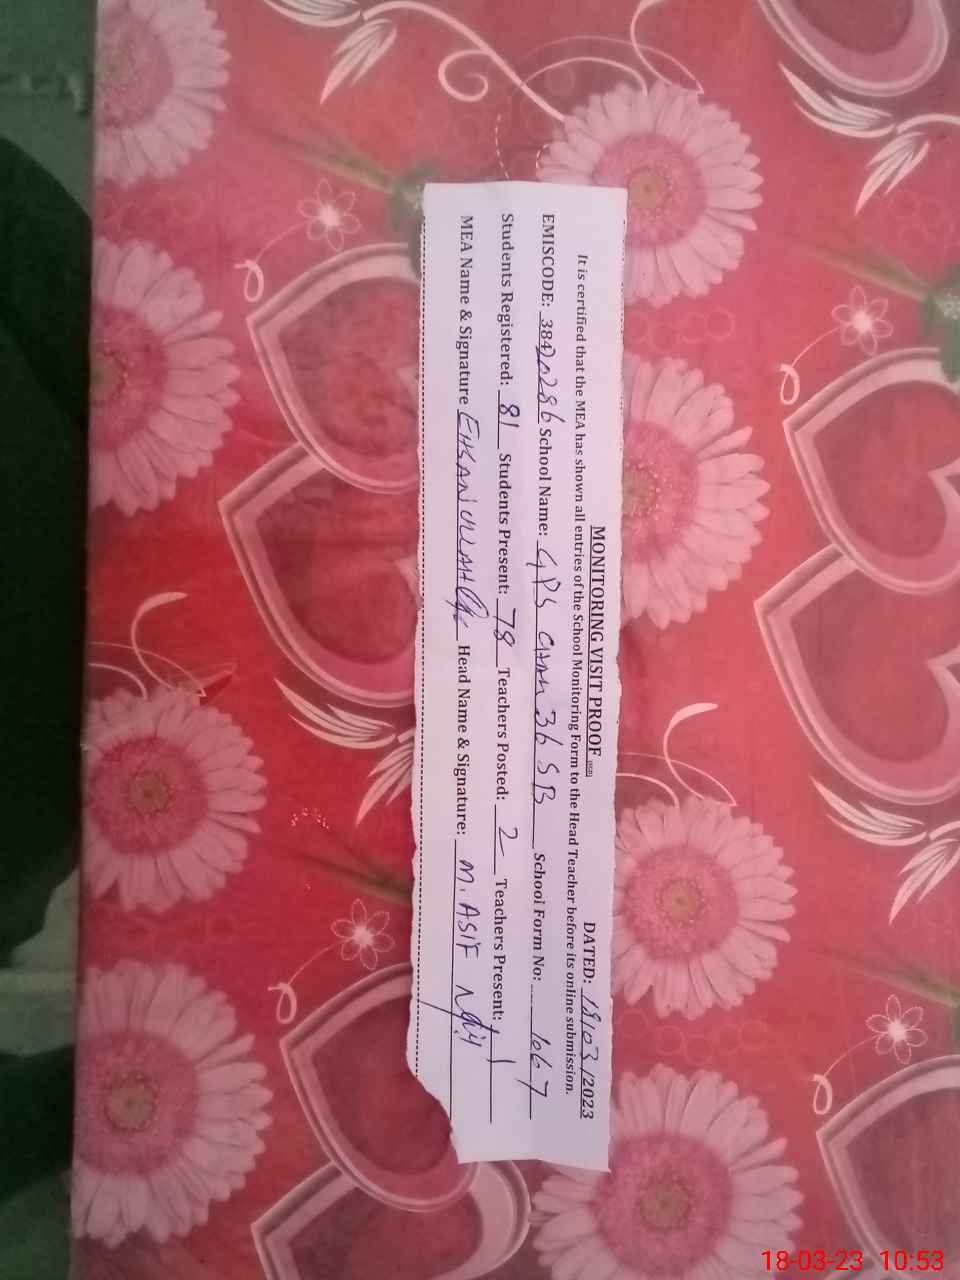 MONITORING VISIT PROOF (HSP) DATED: 18/03/2023
It is certified that the MEA has shown all entries of the School Monitoring Form to the Head Teacher before its online submission.
EMISCODE: 38420286 School Name: GPS CHAK 36 SB School Form No: 1067
Students Registered: 81 Students Present: 78 Teachers Posted: 2 Teachers Present: 1
MEA Name & Signature EHSAN ULLAH Head Name & Signature: M. ASIF
18-03-23 10:53